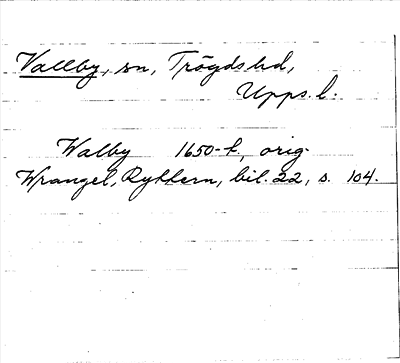 Vallby, sn, Trögds hd,
Upps. l.
Walby 1650-t, orig.
Wrangel, Ryttern, bil. 22, s. 104.